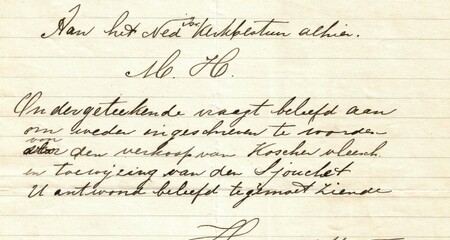 Aan het Ned. isr. Kerkbestuur alhier.
M. H.
Ondergeteekende vraagt beleefd aan
om weder ingeschreven te worden
voor den verkoop van Koscher vleesch
en toewijzing van den Sjouchet
U antwoord beleefd tegemoet ziende